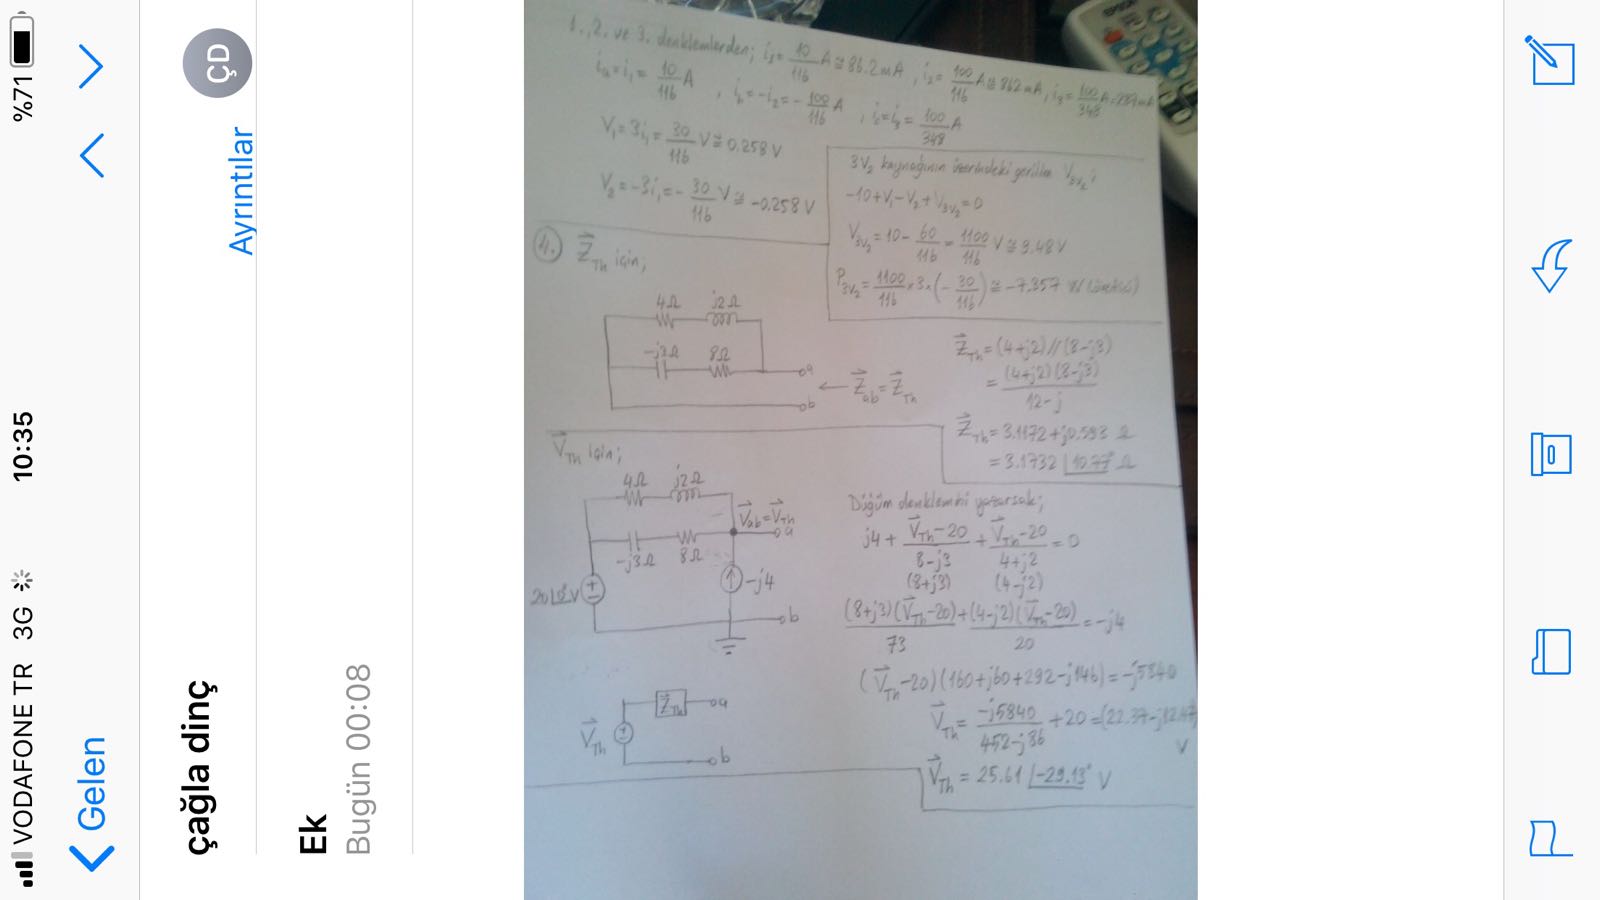 VODAFONE TR 3G 10:35 %71
Gelen
çağla dinç
ÇD
Ayrıntılar
Ek
Bugün 00:08
1., 2. ve 3. denklemlerden; i₁ = 10/116 A ≅ 86.2 mA , i₂ = 100/116 A ≅ 862 mA , i₃ = 100/348 A
iₐ = i₁ = 10/116 A , i_b = -i₂ = -100/116 A , i_c = i₃ = 100/348 A
V₁ = 3i₁ = 30/116 V ≅ 0.258 V
V₂ = -3i₁ = -30/116 V ≅ -0.258 V
3V₂ kaynağının üzerindeki gerilim V_3V₂;
-10+V₁-V₂+V_3V₂=0
V_3V₂ = 10 - 60/116 = 1100/116 V ≅ 9.48 V
P_3V₂ = 1100/116 × 3 × (-30/116) ≅ -7.357 W (üretici)
4. Z_Th için;
4Ω j2Ω
-j3Ω 8Ω
a
b
← Z_ab = Z_Th
Z_Th = (4+j2)//(8-j3)
= (4+j2)(8-j3)/12-j
Z_Th = 3.1172+j0.593 Ω
= 3.1732 ∠10.77° Ω
V_Th için;
4Ω j2Ω
V_ab = V_Th
a
-j3Ω 8Ω
20∠0° V
-j4
b
Düğüm denklemini yazarsak;
j4 + V_Th-20/8-j3 + V_Th-20/4+j2 = 0
(8+j3) (4-j2)
(8+j3)(V_Th-20)/73 + (4-j2)(V_Th-20)/20 = -j4
(V_Th-20)(160+j60+292-j146) = -j5840
V_Th = -j5840/452-j86 + 20 = (22.37-j12.47) V
V_Th = 25.61 ∠-29.13° V
V_Th
Z_Th
a
b